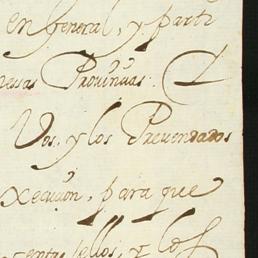 en general, y parti
nessas Provincias.
Vos, y los Prevendados
xecucion, para que
entre ellos, y